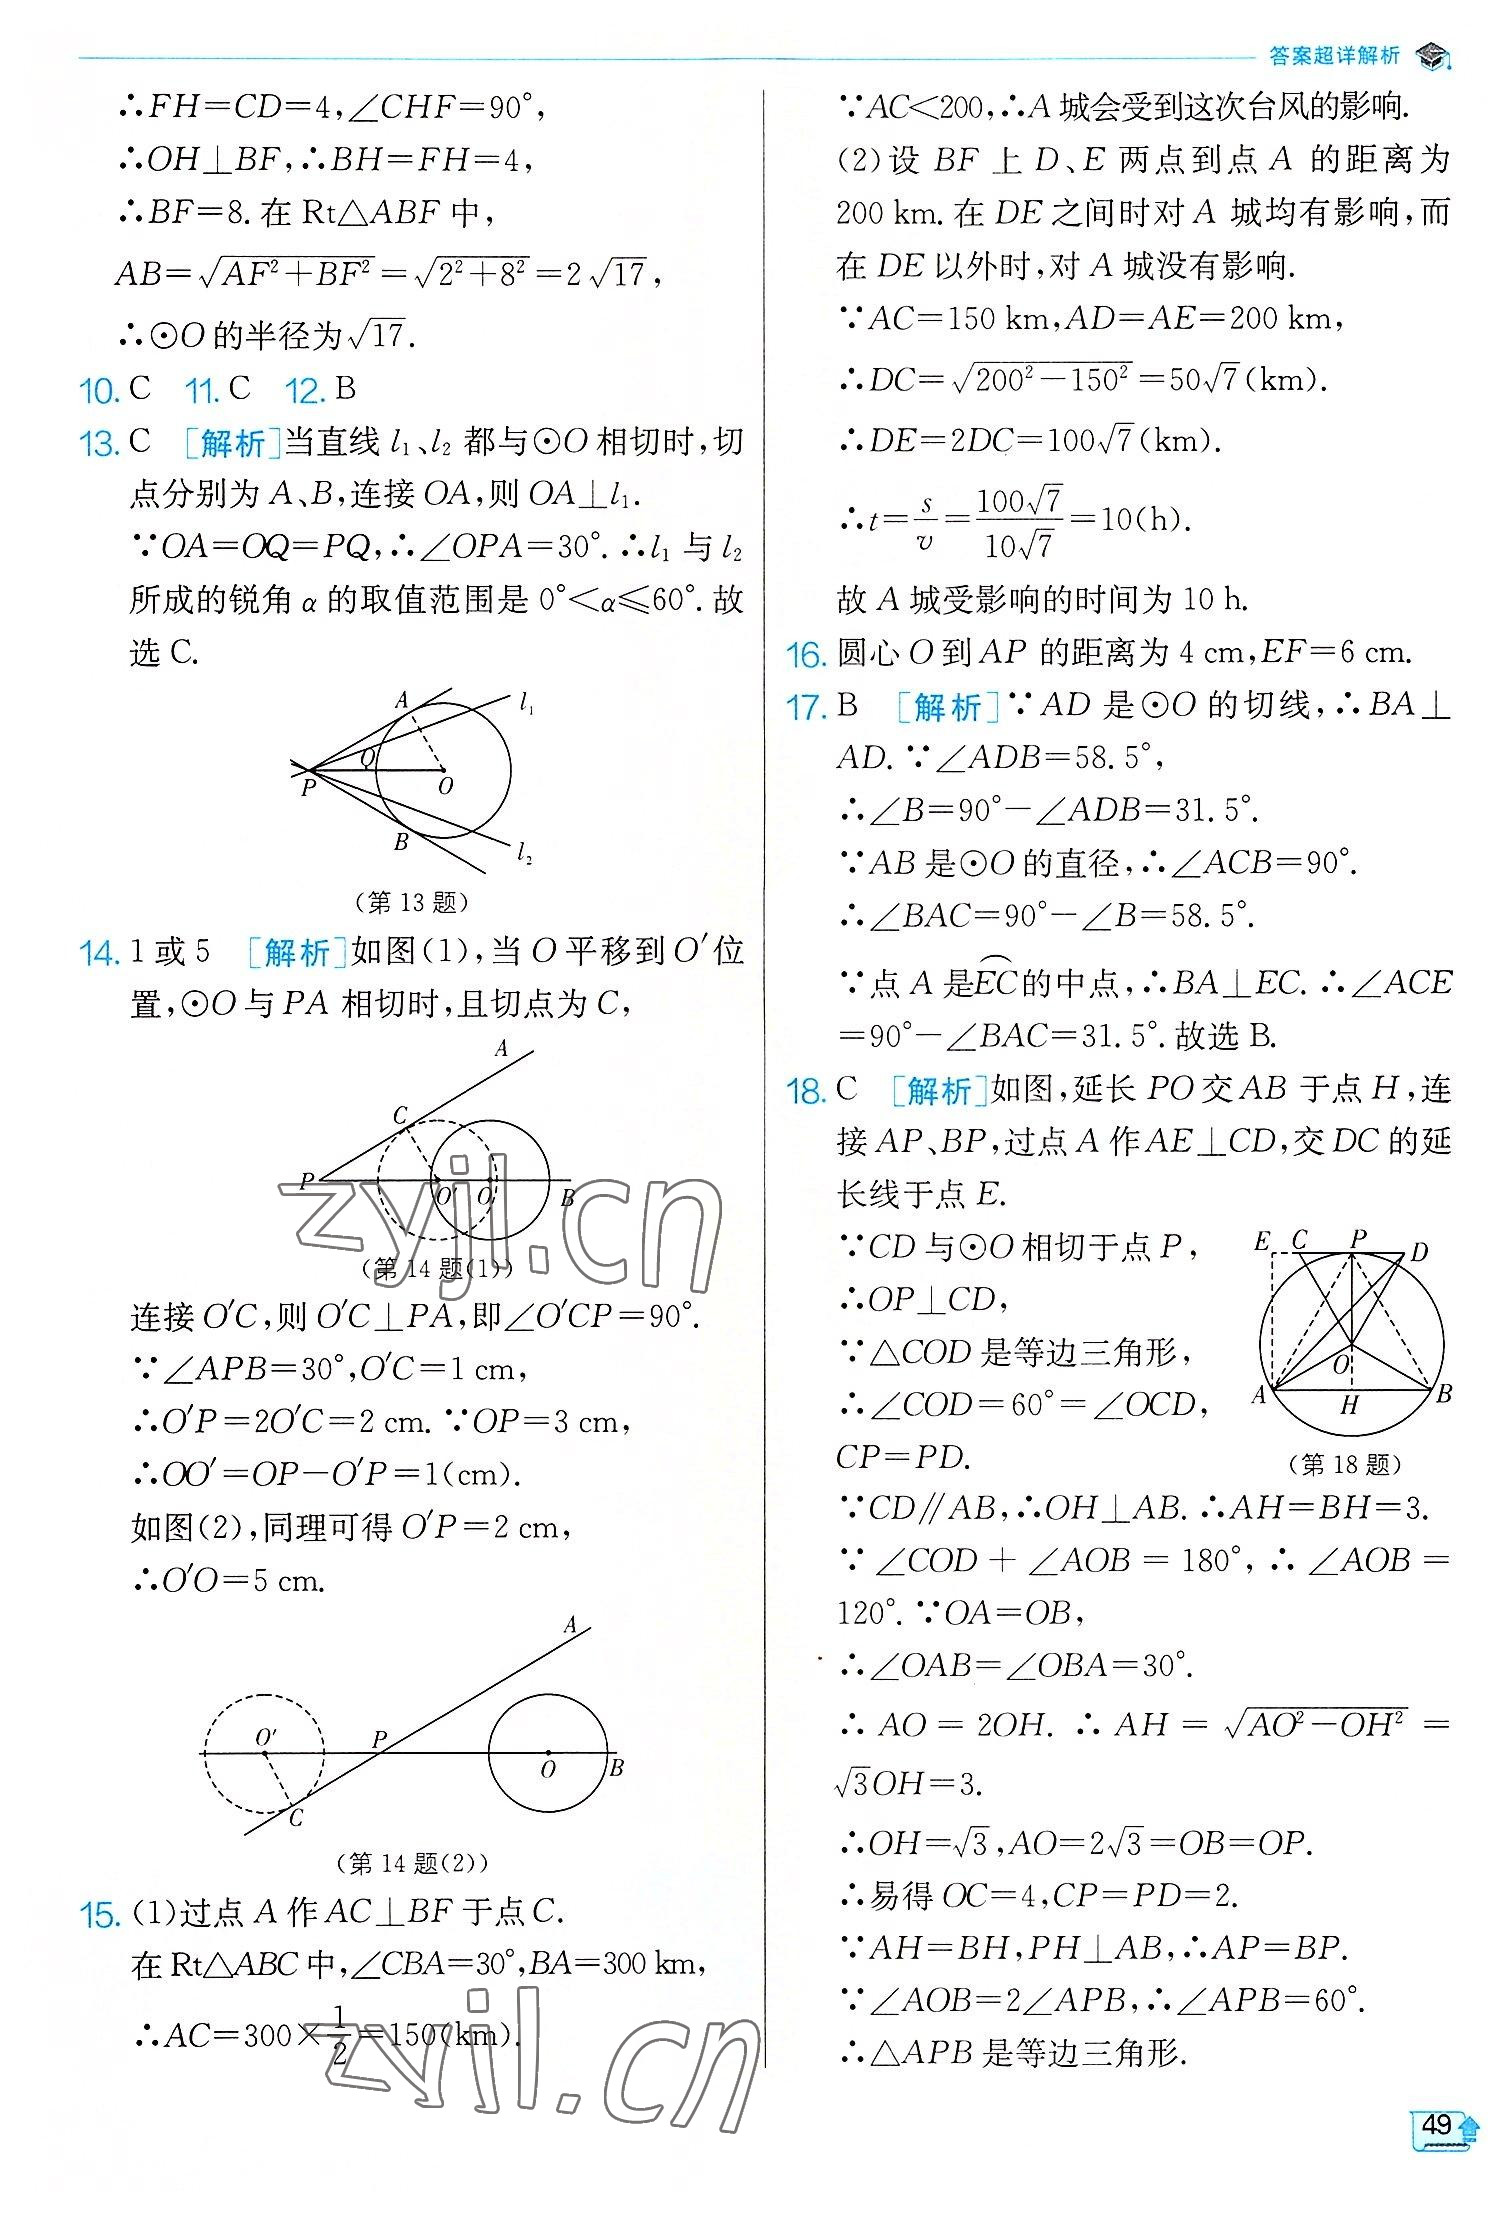 答案超详解析
∴FH=CD=4,∠CHF=90°,
∴OH⊥BF,∴BH=FH=4,
∴BF=8.在Rt△ABF中,
AB=√(AF²+BF²)=√(2²+8²)=2√17,
∴⊙O的半径为√17.
10. C 11. C 12. B
13. C [解析]当直线l₁、l₂都与⊙O相切时,切
点分别为A、B,连接OA,则OA⊥l₁.
∵OA=OQ=PQ,∴∠OPA=30°.∴l₁与l₂
所成的锐角α的取值范围是0°<α≤60°.故
选C.
A l₁
Q
P O
B l₂
(第13题)
14. 1或5 [解析]如图(1),当O平移到O′位
置,⊙O与PA相切时,且切点为C,
A
C
P O′ O B
(第14题(1))
连接O′C,则O′C⊥PA,即∠O′CP=90°.
∵∠APB=30°,O′C=1 cm,
∴O′P=2O′C=2 cm.∵OP=3 cm,
∴OO′=OP-O′P=1(cm).
如图(2),同理可得O′P=2 cm,
∴O′O=5 cm.
A
O′ P O B
C
(第14题(2))
15. (1)过点A作AC⊥BF于点C.
在Rt△ABC中,∠CBA=30°,BA=300 km,
∴AC=300×1/2=150(km).
∵AC<200,∴A城会受到这次台风的影响.
(2)设BF上D、E两点到点A的距离为
200 km.在DE之间时对A城均有影响,而
在DE以外时,对A城没有影响.
∵AC=150 km,AD=AE=200 km,
∴DC=√(200²-150²)=50√7(km).
∴DE=2DC=100√7(km).
∴t=s/v=100√7/10√7=10(h).
故A城受影响的时间为10 h.
16. 圆心O到AP的距离为4 cm,EF=6 cm.
17. B [解析]∵AD是⊙O的切线,∴BA⊥
AD.∵∠ADB=58.5°,
∴∠B=90°-∠ADB=31.5°.
∵AB是⊙O的直径,∴∠ACB=90°.
∴∠BAC=90°-∠B=58.5°.
∵点A是⌒EC的中点,∴BA⊥EC.∴∠ACE
=90°-∠BAC=31.5°.故选B.
18. C [解析]如图,延长PO交AB于点H,连
接AP、BP,过点A作AE⊥CD,交DC的延
长线于点E.
∵CD与⊙O相切于点P,
∴OP⊥CD,
∵△COD是等边三角形,
∴∠COD=60°=∠OCD,
CP=PD.
E C P D
O
A H B
(第18题)
∵CD∥AB,∴OH⊥AB.∴AH=BH=3.
∵∠COD+∠AOB=180°,∴∠AOB=
120°.∵OA=OB,
∴∠OAB=∠OBA=30°.
∴AO=2OH.∴AH=√(AO²-OH²)=
√3OH=3.
∴OH=√3,AO=2√3=OB=OP.
∴易得OC=4,CP=PD=2.
∵AH=BH,PH⊥AB,∴AP=BP.
∵∠AOB=2∠APB,∴∠APB=60°.
∴△APB是等边三角形.
zyjl.cn
zyjl.cn
49